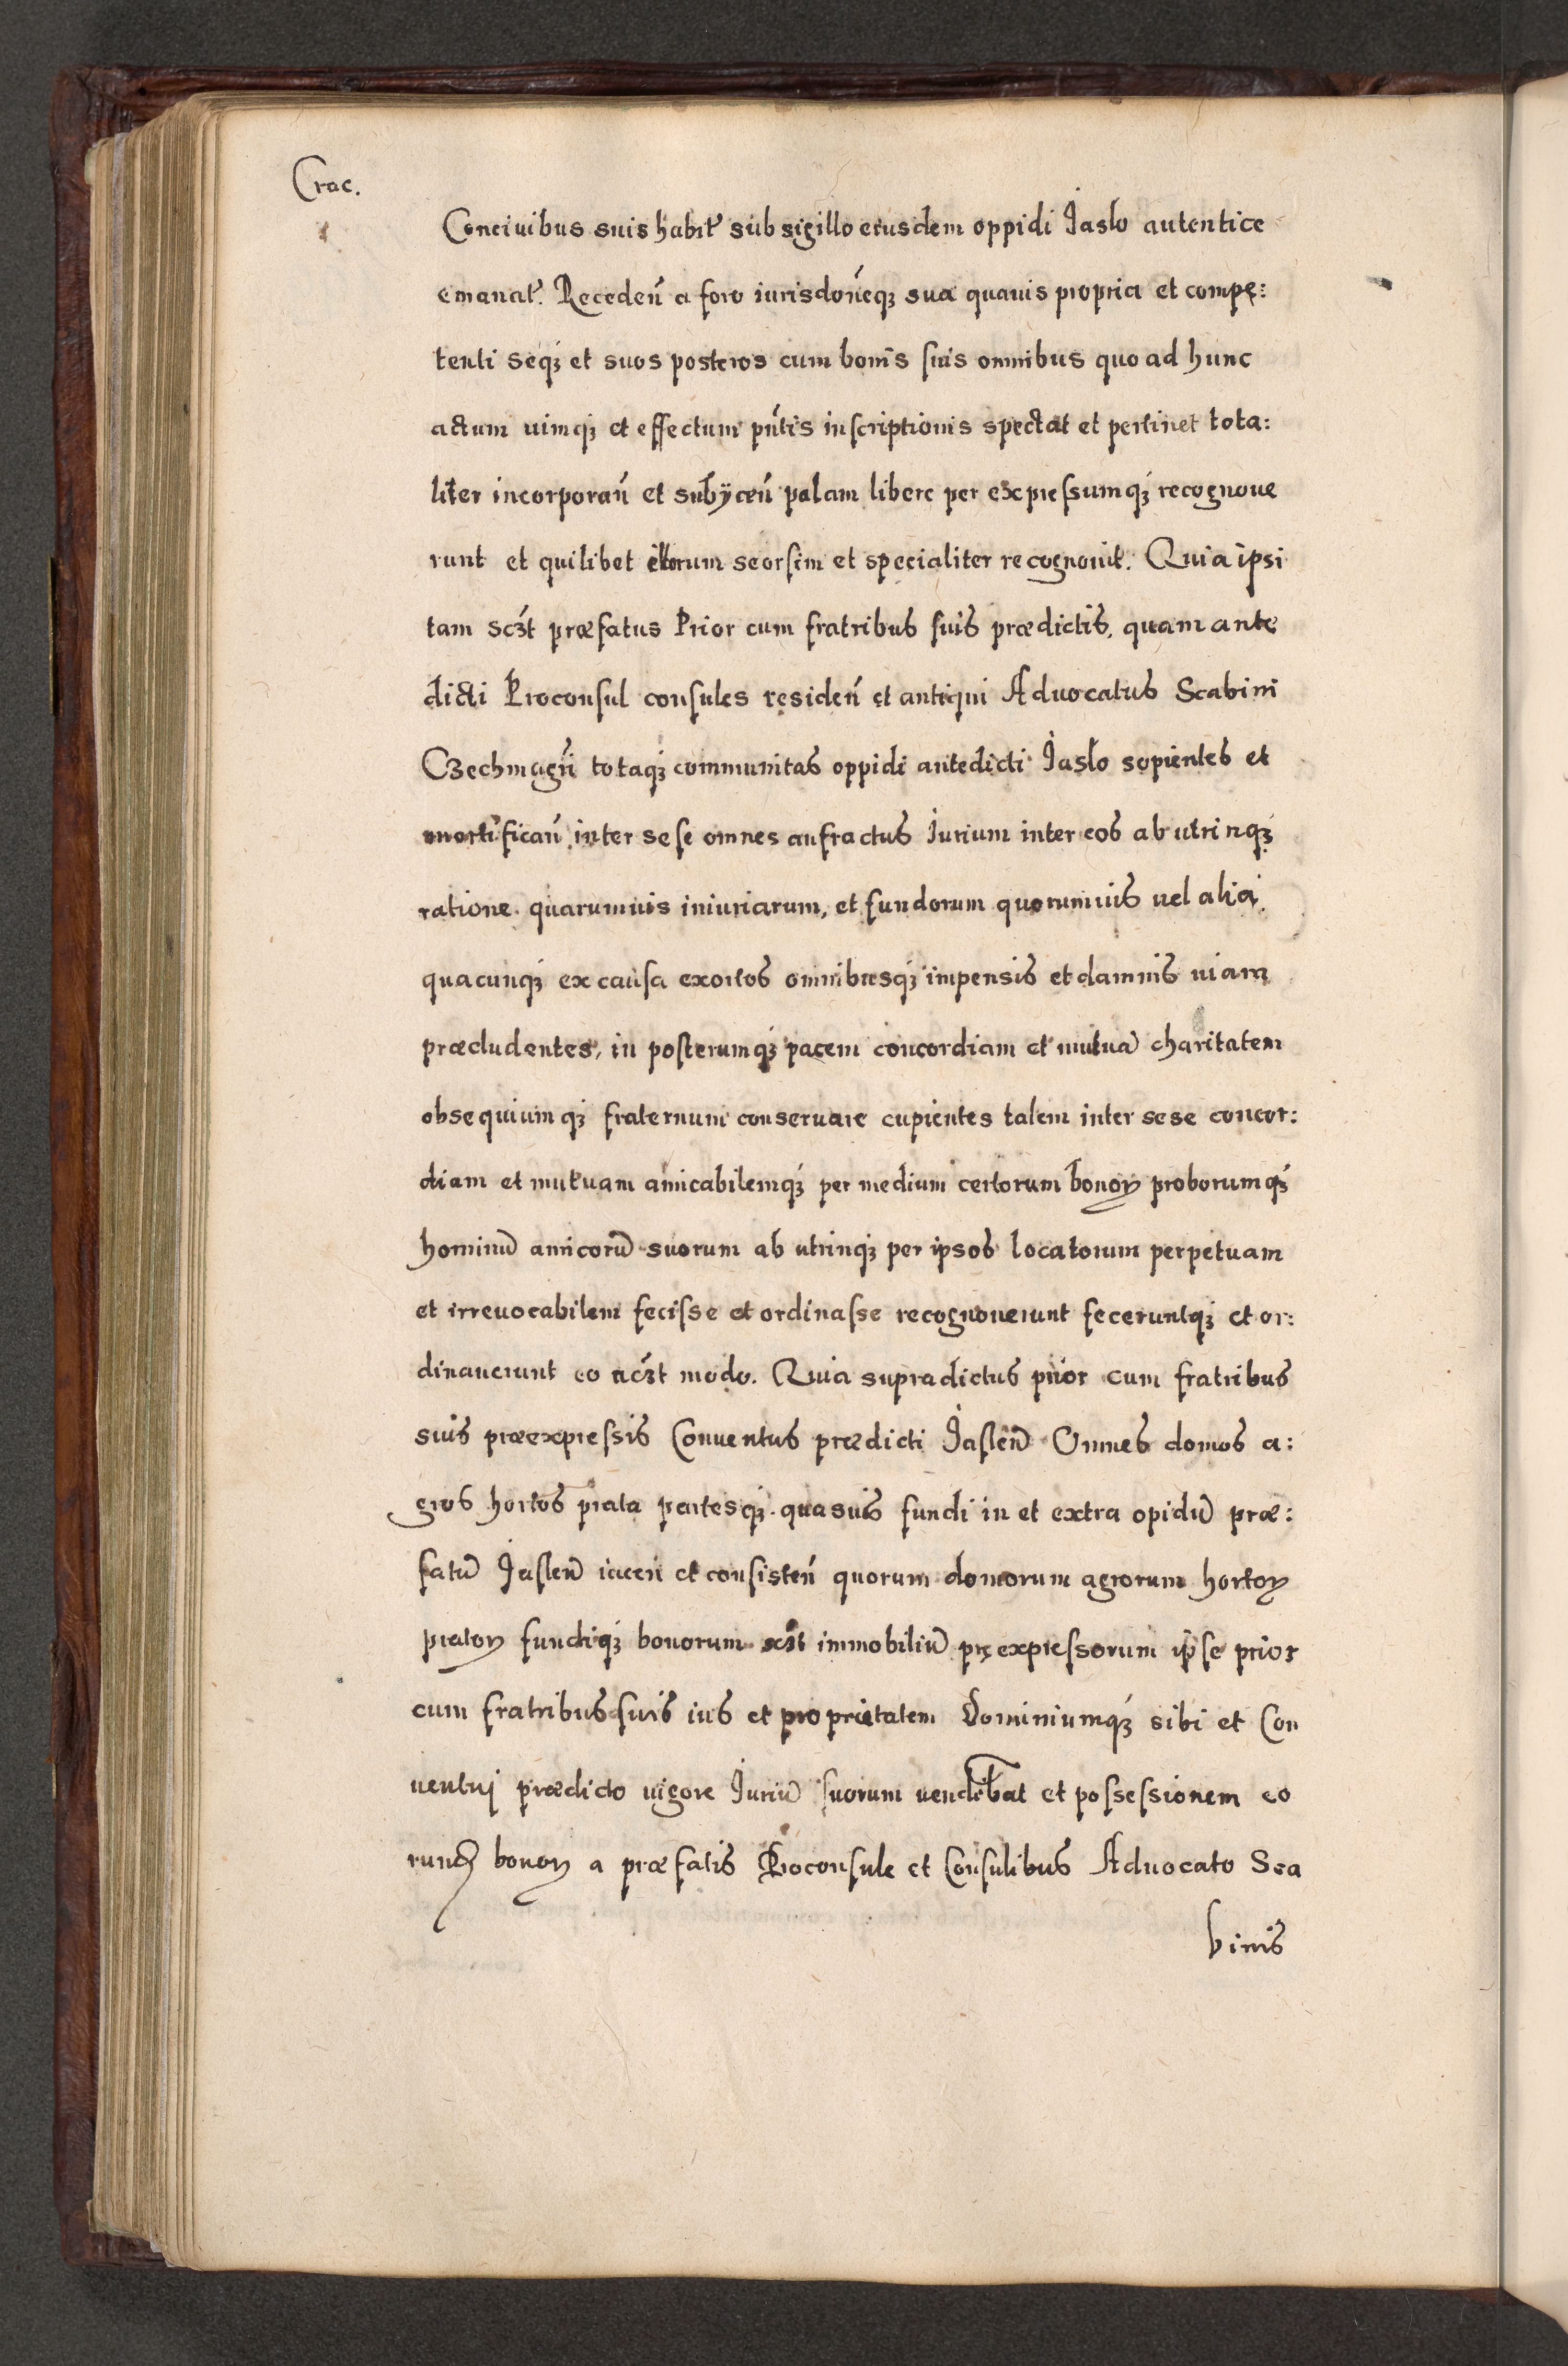 Crac.
Conciuibus suis habit̃ sub sigillo eiusdem oppidi Jaslo autentice
emanat̃. Receden̄ a foro iurisdon̄eqʒ sua quauis propria et compę:
tenti seqʒ et suos posteros cum bonis suis omnibus quo ad hunc
actum uimqʒ et effectum pn̄tis inscriptionis spectat et pertinet tota:
liter incorporan̄ et subijcen̄ palam libere per expressumqʒ recognoue
runt et quilibet illorum seorsim et specialiter recognouit. Quia ipsi
tam scʒt præfatus Prior cum fratribus suis prædictis, quam antę
dicti Proconsul consules residen̄ et antiqui Aduocatus Scabini
Czechmagr̄i totaqʒ communitas oppidi antedicti Jaslo sopientes et
mortifican̄ inter sese omnes anfractus Jurium inter eos ab utrinqʒ
ratione quarumuis iniuriarum, et fundorum quorumuis uel alia
quacunqʒ ex causa exortos omnibusqʒ impensis et damnis uiam
præcludentes, in posterumqʒ pacem concordiam et mutuā charitatem
obsequiumqʒ fraternum conseruare cupientes talem inter sese concor:
diam et mutuam amicabilemqʒ per medium certorum bonoꝝ proborumqʒ
hominū amicorū suorum ab utrinqʒ per ipsos locatorum perpetuam
et irreuocabilem fecisse et ordinasse recognouerunt feceruntqʒ et or:
dinauerunt eo ucʒt modo. Quia supradictus prior cum fratribus
suis præexpressis Conuentus prædicti Jaslen̄ Omnes domos a:
gros hortos prata partesqʒ quasuis fundi in et extra opidū præ:
fatū Jaslen̄ iacen̄ et consisten̄ quorum domorum agrorum hortoꝝ
pratoꝝ fundiqʒ bonorum scʒt immobiliū pręexpressorum ipse prior
cum fratribus suis ius et proprietatem Dominiumqʒ sibi et Con
uentui prædicto uigore Juriū suorum vendebat et possessionem eo
rundꝫ bonoꝝ a præfatis Proconsule et Consulibus Aduocato Sca
binis